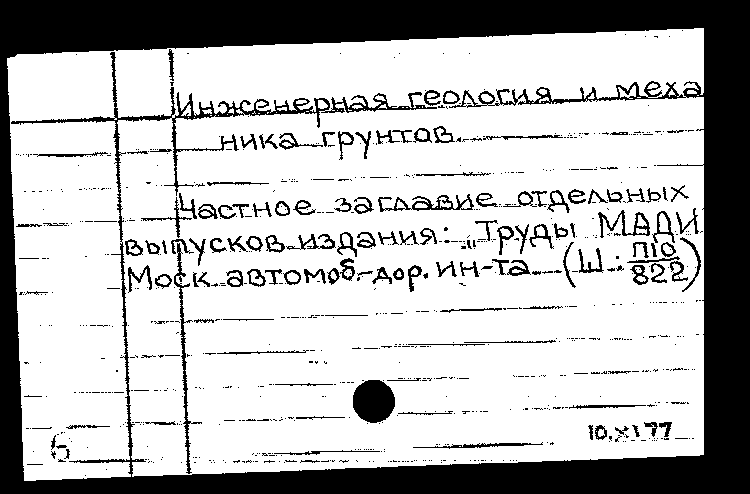 Инженерная геология и меха
ника грунтов.
Частное заглавие отдельных
выпусков издания: „Труды МАДИ
Моск. автомоб.-дор. ин-та (Ш: П10/822)
10.XI 77
6